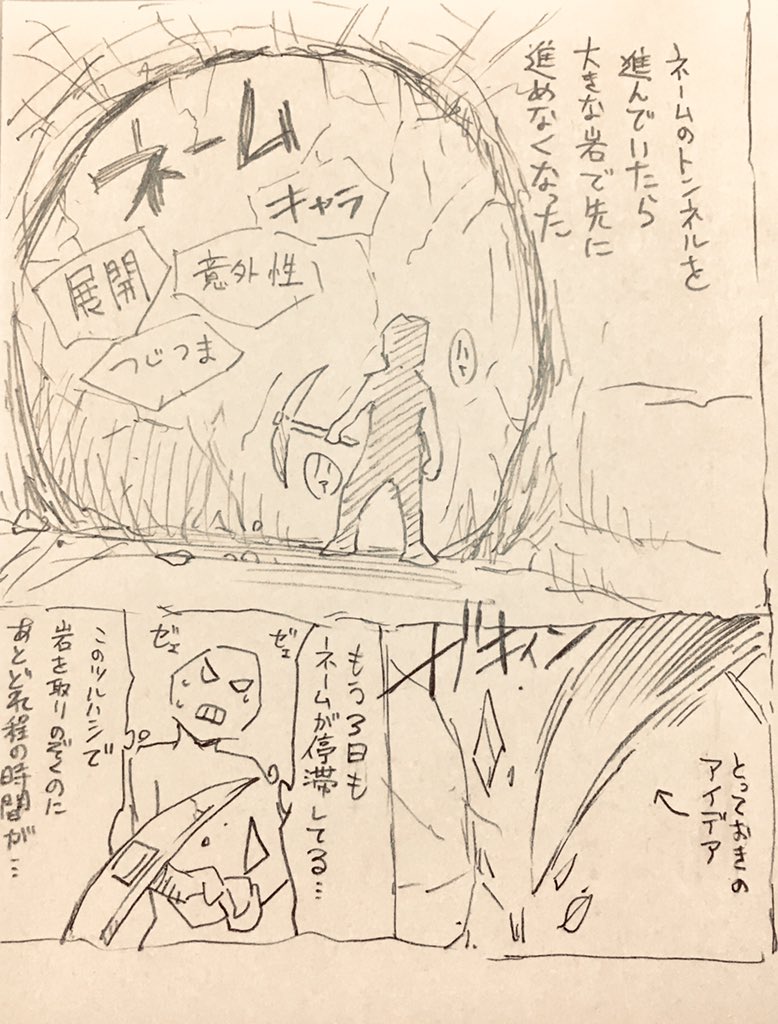 ネームのトンネルを
進んでいたら
大きな岩で先に
進めなくなった
ネーム
キャラ
意外性
展開
つじつま
ハァ
ハァ
ガキィン
とっておきの
アイデア
もう3日も
ネームが停滞してる…
ゼェ
ゼェ
このツルハシで
岩を取りのぞくのに
あとどれ程の時間が…